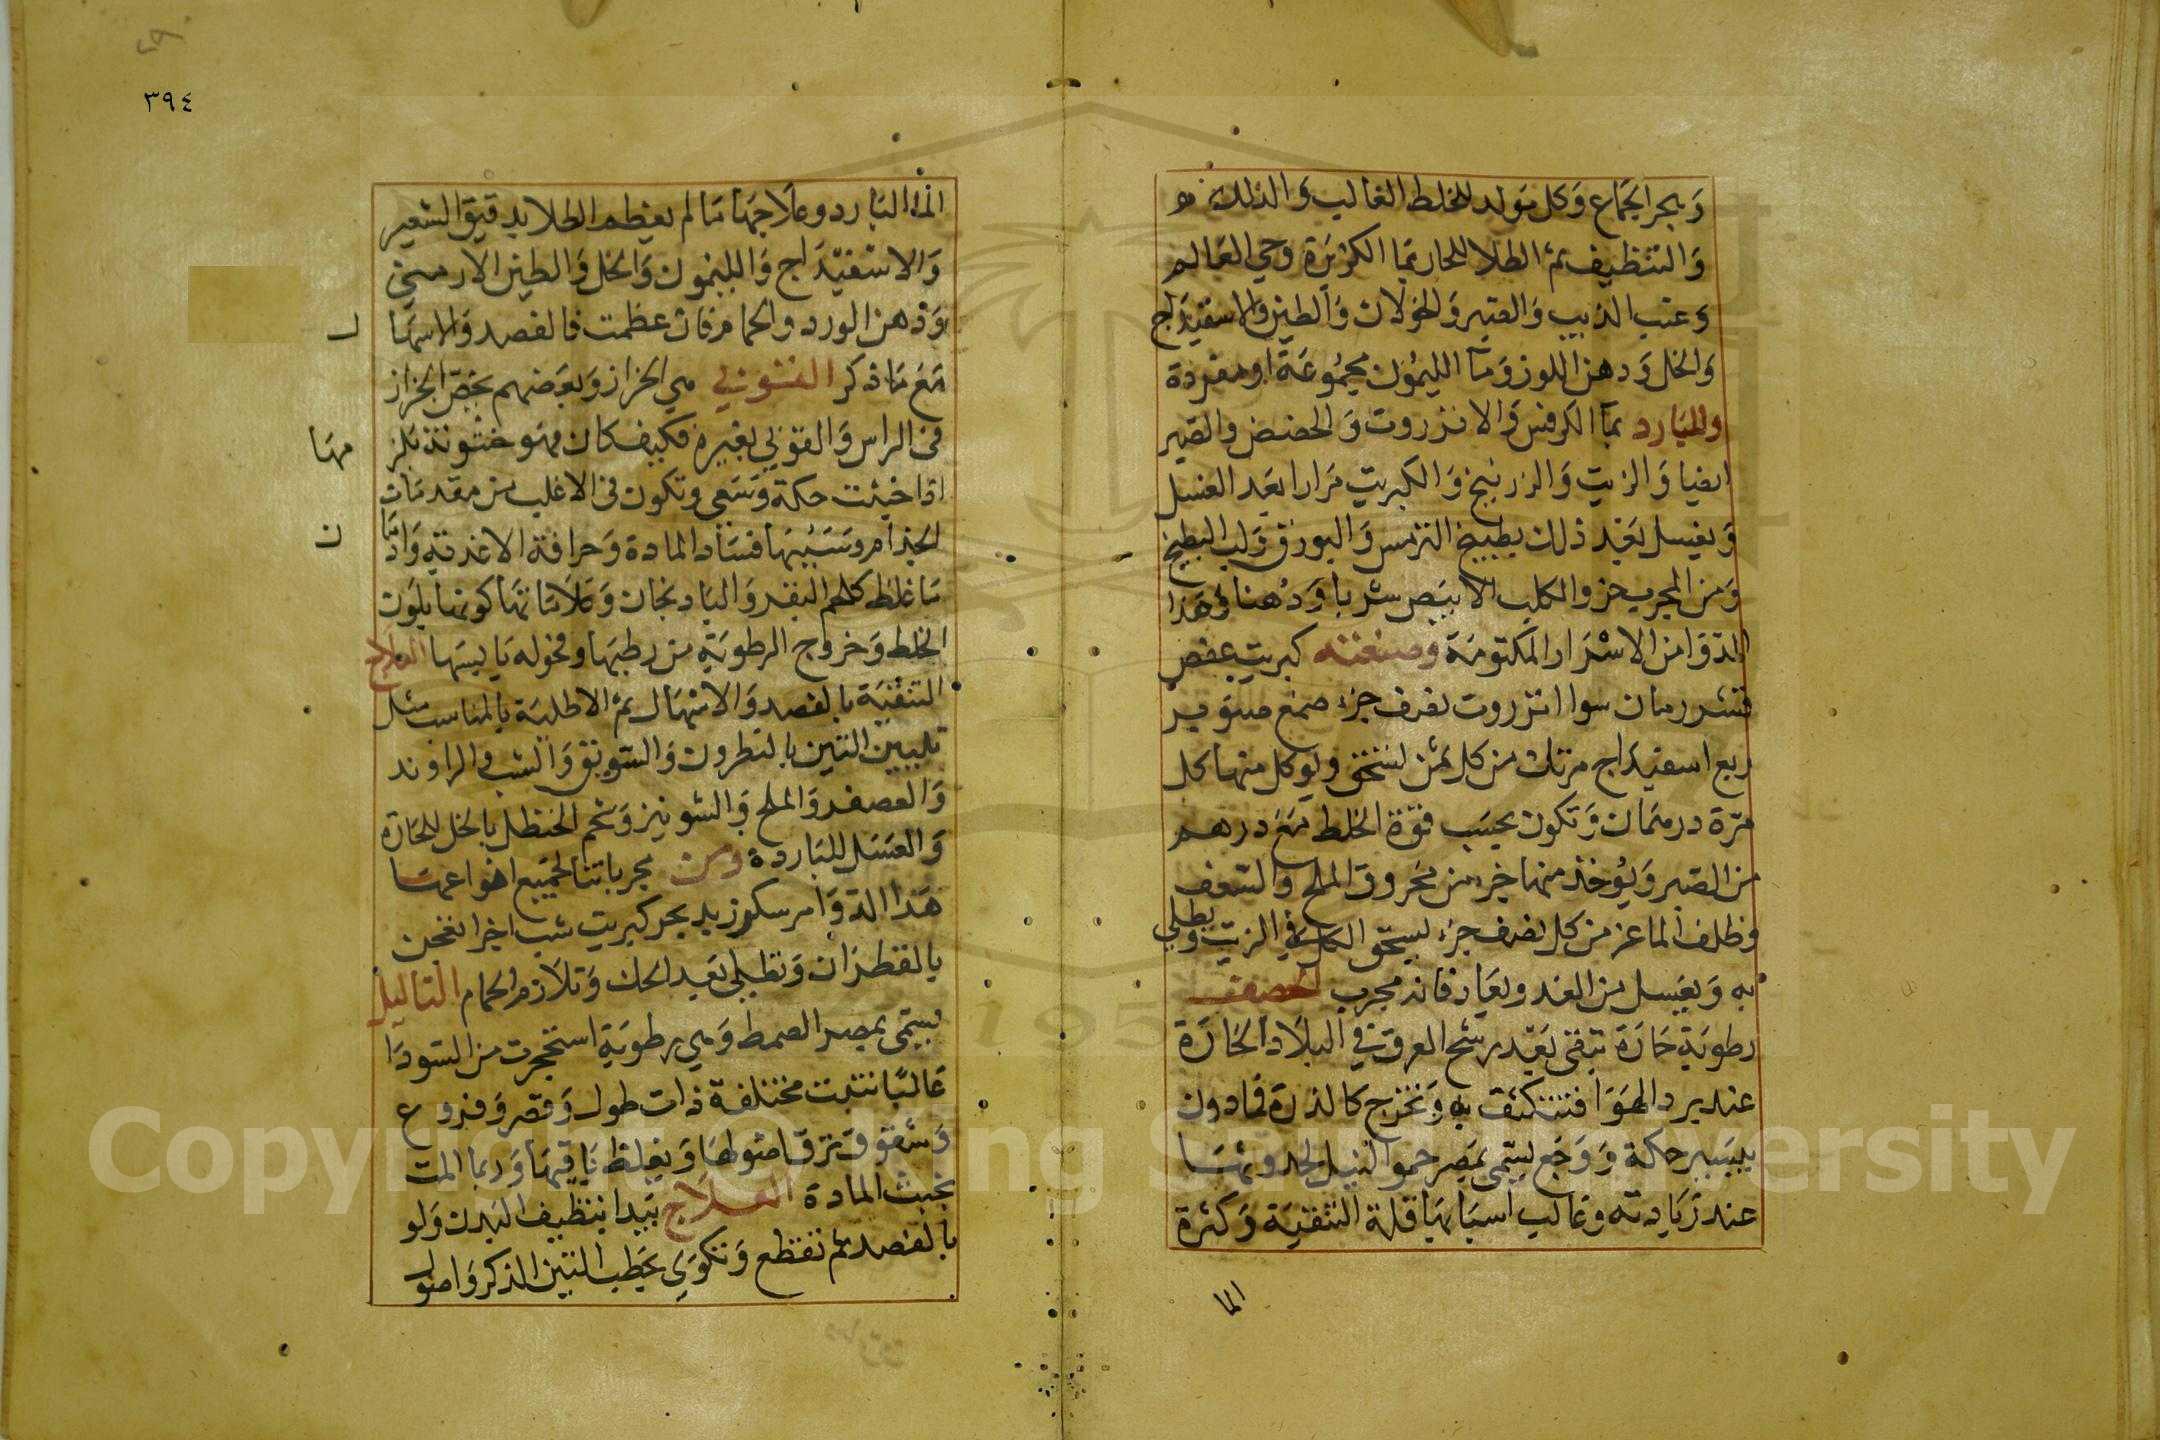 وَبحر الجماع وَكل مَولد للخلط الغالب وَالدلك
وَالتنظيف ثم الطلا للحار بما الكزبرَة وحي العَالم
وَعنب الذيب وَالقيروَالخولان وَالطين وَالاسفيداج
وَالخل وَدهن اللوز وَمآ الليمُون مجمُوعَة او مفردة
والبَارد بمآ الكرفس وَالانزروت وَالحضض والصبر
ايضا وَالزيت وَالزرنيخ وَالكبريت مرارا بعَد الغسل
وَيغسل بَعد ذلك بطبيخ الترمس وَالبورق وَلب البطيخ
وَمن المجرب خزو الكلب الابيَض شربا وَدُهنا وَهَذا
الدوَا من الاسْرَار المكتومَة وصنعته كبريت عفص
قشر رمان سوا انزروت نصف جزء صمغ صنوبر
ربع اسفيدَاج مرتك من كل ثمن لسخن ويوكل منها كل
مرَة درهمَان وَتكون بحسَب قوَة الخلط مَع درهم
من الصبر وَيُوخذ منها جزء من محروق الملح وَالسعف
وظلف الماعز من كل نصف جزء ليسحق الكل في الزيت وَيطلى
به وَيغسل من الغد ويعَاد فانه مجرب الحصف
رطوبَة حَارَة تبقى بَعد رشح العرق في البلاَد الحَارَة
عند برد الهَوَا فتتكثف به وَتخرج كالذرَة فمادون
بيَسير حكة وَوَجَع ليسَمى بمَصر حمو النيل لحدوثهَا
عند زيَادته وغالب اسبَابهَا قلة التنقيَة وَكثرة
الما
٣٩٤
الما البَارد وعلاجهَا مَا لم يعظم الطلا بدقيق الشعير
وَالاسفيدَاج وَالليمون وَالخل وَالطين الارمني
وَدهن الورد والحمام فان عظمت فالفصد وَالاسهَا
ل
مَع مَا ذكر القوبي هي الحزاز وَبعَضهم يخص الحزاز
في الراس وَالقوبي بغيره فكيف كان فهو خشونة يلز
مهَا
اذا خبثت حكة وَتسَعى وتكون في الاغلب من مقدمات
الجذام وَسَببهَا فسَاد المادة وَحرافة الاغذية وَادمَا
ن
مَا غلظ كلحم البقر وَالبَاد نجان وَعلاَمَاتهَا كونهَا بلَون
الخلط وَخروج الرطوبَة من رطبهَا ونحوله يَابسهَا العلاج
التنقيَة بالفصد وَالاسهَال ثم الاطليَة بالمناسب مثل
تليين التين بالنطرون وَالسَويق وَالشب والراوند
وَالعصفر وَالملح وَالشونيز وَشحم الحنظل بالخل للحَارَة
وَالعَسَل للبَاردة وَمن مجرباتنا لجميع انواعهَا
هَذا الدوَا مر سكر زبد بحر كبريت شب اجزا تعجن
بالقطرَان وَتطلى بَعد الحك وَتلاَزم الحمام الثاليل
يسَمى بمصر السمط وَهي رطوبَة استحجرت من السَودَا
غالبًا تنبت مختلفة ذات طول وَقصر وَفروع
وَشقوق ترق اصولهَا وَيغلظ بَاقيهَا وَربما المت
بخبث المادة العلاج يبَدا بتنظيف البَدن وَلو
بالفصد ثم تقطع وَتكوَى بحَطب التين الذكر وَاصول